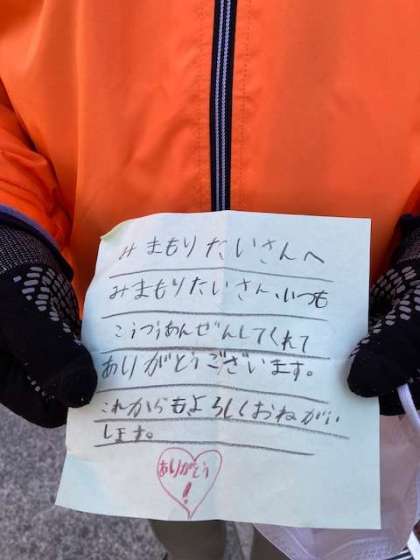 みまもりたいさんへ
みまもりたいさん、いつも
こうつうあんぜんしてくれて
ありがとうございます。
これからも、よろしくおねがい
します。
ありがとう
!